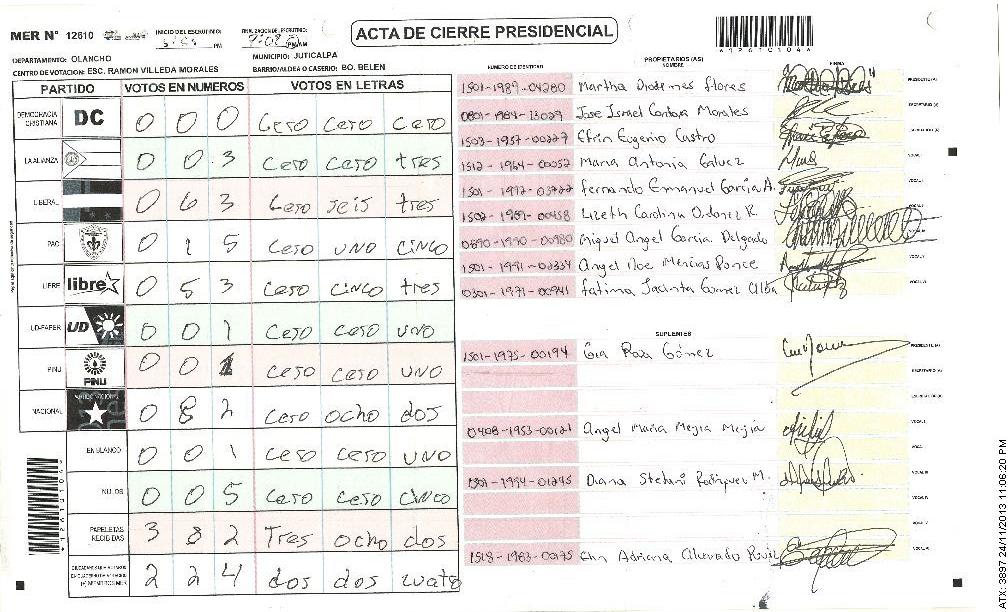 MER N° 12610
INICIO DEL ESCRUTINIO:
FINALIZACION DE ESCRUTINIO:
ACTA DE CIERRE PRESIDENCIAL
*126101046*
DEPARTAMENTO: OLANCHO
MUNICIPIO: JUTICALPA
CENTRO DE VOTACION: ESC. RAMON VILLEDA MORALES
BARRIO/ALDEA O CASERIO: BO. BELEN
PARTIDO VOTOS EN NUMEROS VOTOS EN LETRAS
DEMOCRACIA CRISTIANA DC 0 0 0 Cero cero cero
LA ALIANZA 0 0 3 Cero cero tres
LIBERAL 0 6 3 Cero seis tres
PAC 0 1 5 Cero uno cinco
LIBRE libre 0 5 3 Cero cinco tres
UD-FAPER UD 0 0 1 Cero cero uno
PINU PINU 0 0 1 Cero cero uno
NACIONAL 0 8 2 Cero ocho dos
EN BLANCO 0 0 1 Cero cero uno
NULOS 0 0 5 Cero cero cinco
PAPELETAS RECIBIDAS 3 8 2 Tres ocho dos
2 2 4 dos dos cuatro
NUMERO DE IDENTIDAD PROPIETARIOS (AS) NOMBRE FIRMA
1501-1989-04280 Martha Flores PRESIDENTE (A)
0801-1984-13029 Jose Ismael Morales SECRETARIO (A)
1503-1957-00227 Efrin Eugenio Castro
1512-1964-00052 Maria Antonia VOCAL I
Fernando Emmanuel Garcia A.
1502-1989-00458 Lizeth Carolina Ordoñez R.
0890-1990-00980 Miguel Angel Garcia Delgado
1501-1991-02334 Angel Noe Mencias Ponce
0301-1971-00941 Fatima Jacinta Gomez
SUPLENTES
1501-1975-00194 Rosa Gómez PRESIDENTE (A)
SECRETARIO (A)
0408-1953-00121 Angel Maria Mejia Mejia
1501-1994-01245 Diana Stefani Rodriguez M.
1518-1983-00175 Adriana Ruiz
*126101046*
ATX: 3897 24/11/2013 11:06:20 PM